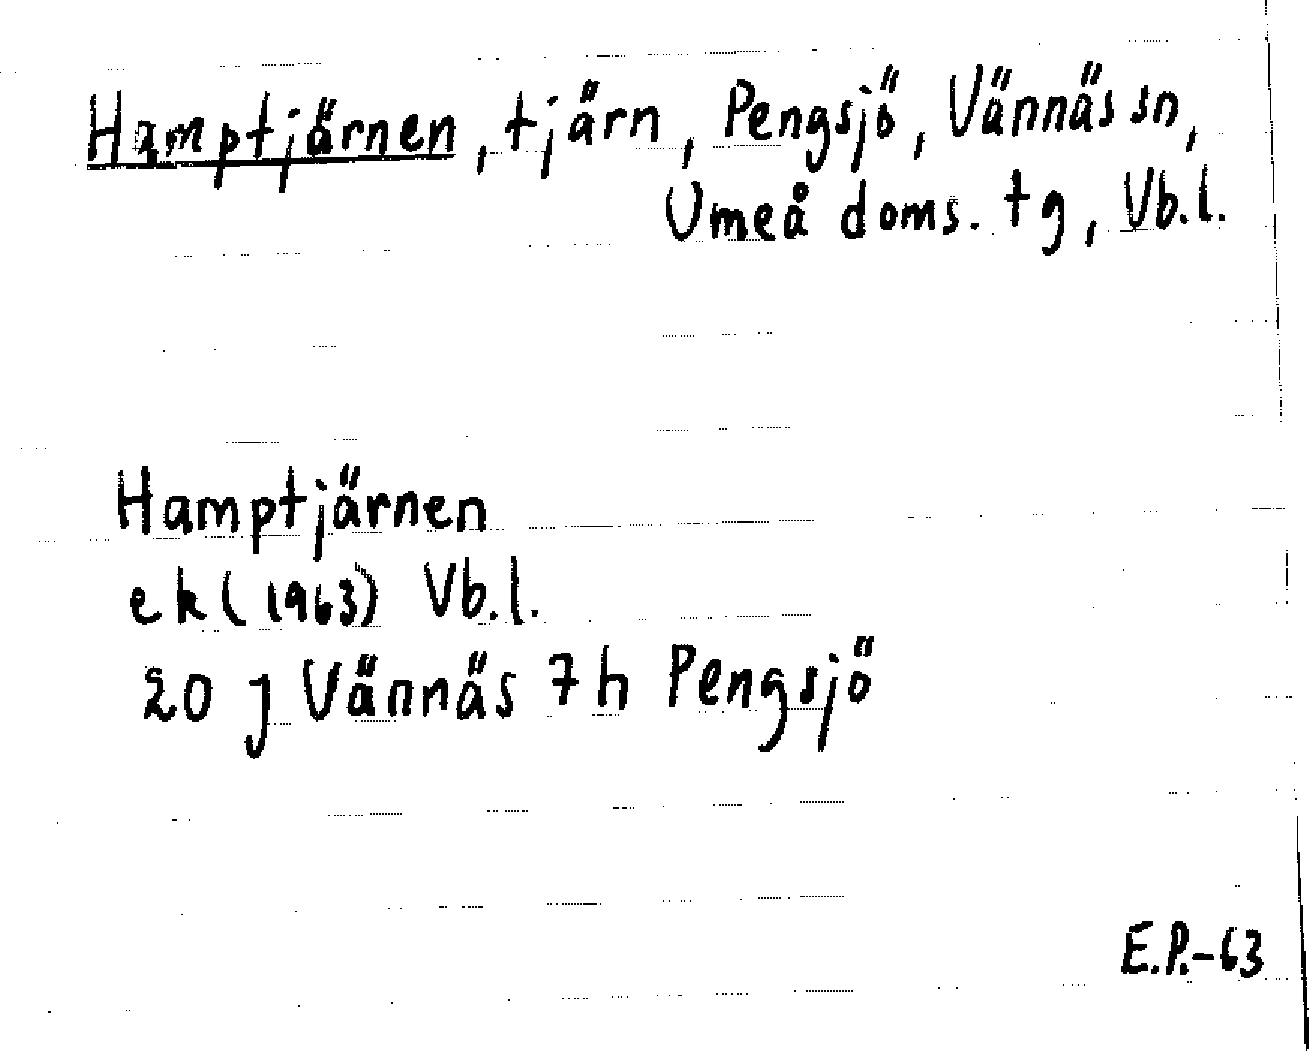 Hamptjärnen, tjärn, Pengsjö, Vännäs sn,
Umeå doms. tg, Vb.l.
Hamptjärnen
ek (1963) Vb.l.
20 J Vännäs 7 h Pengsjö
E.P.-63